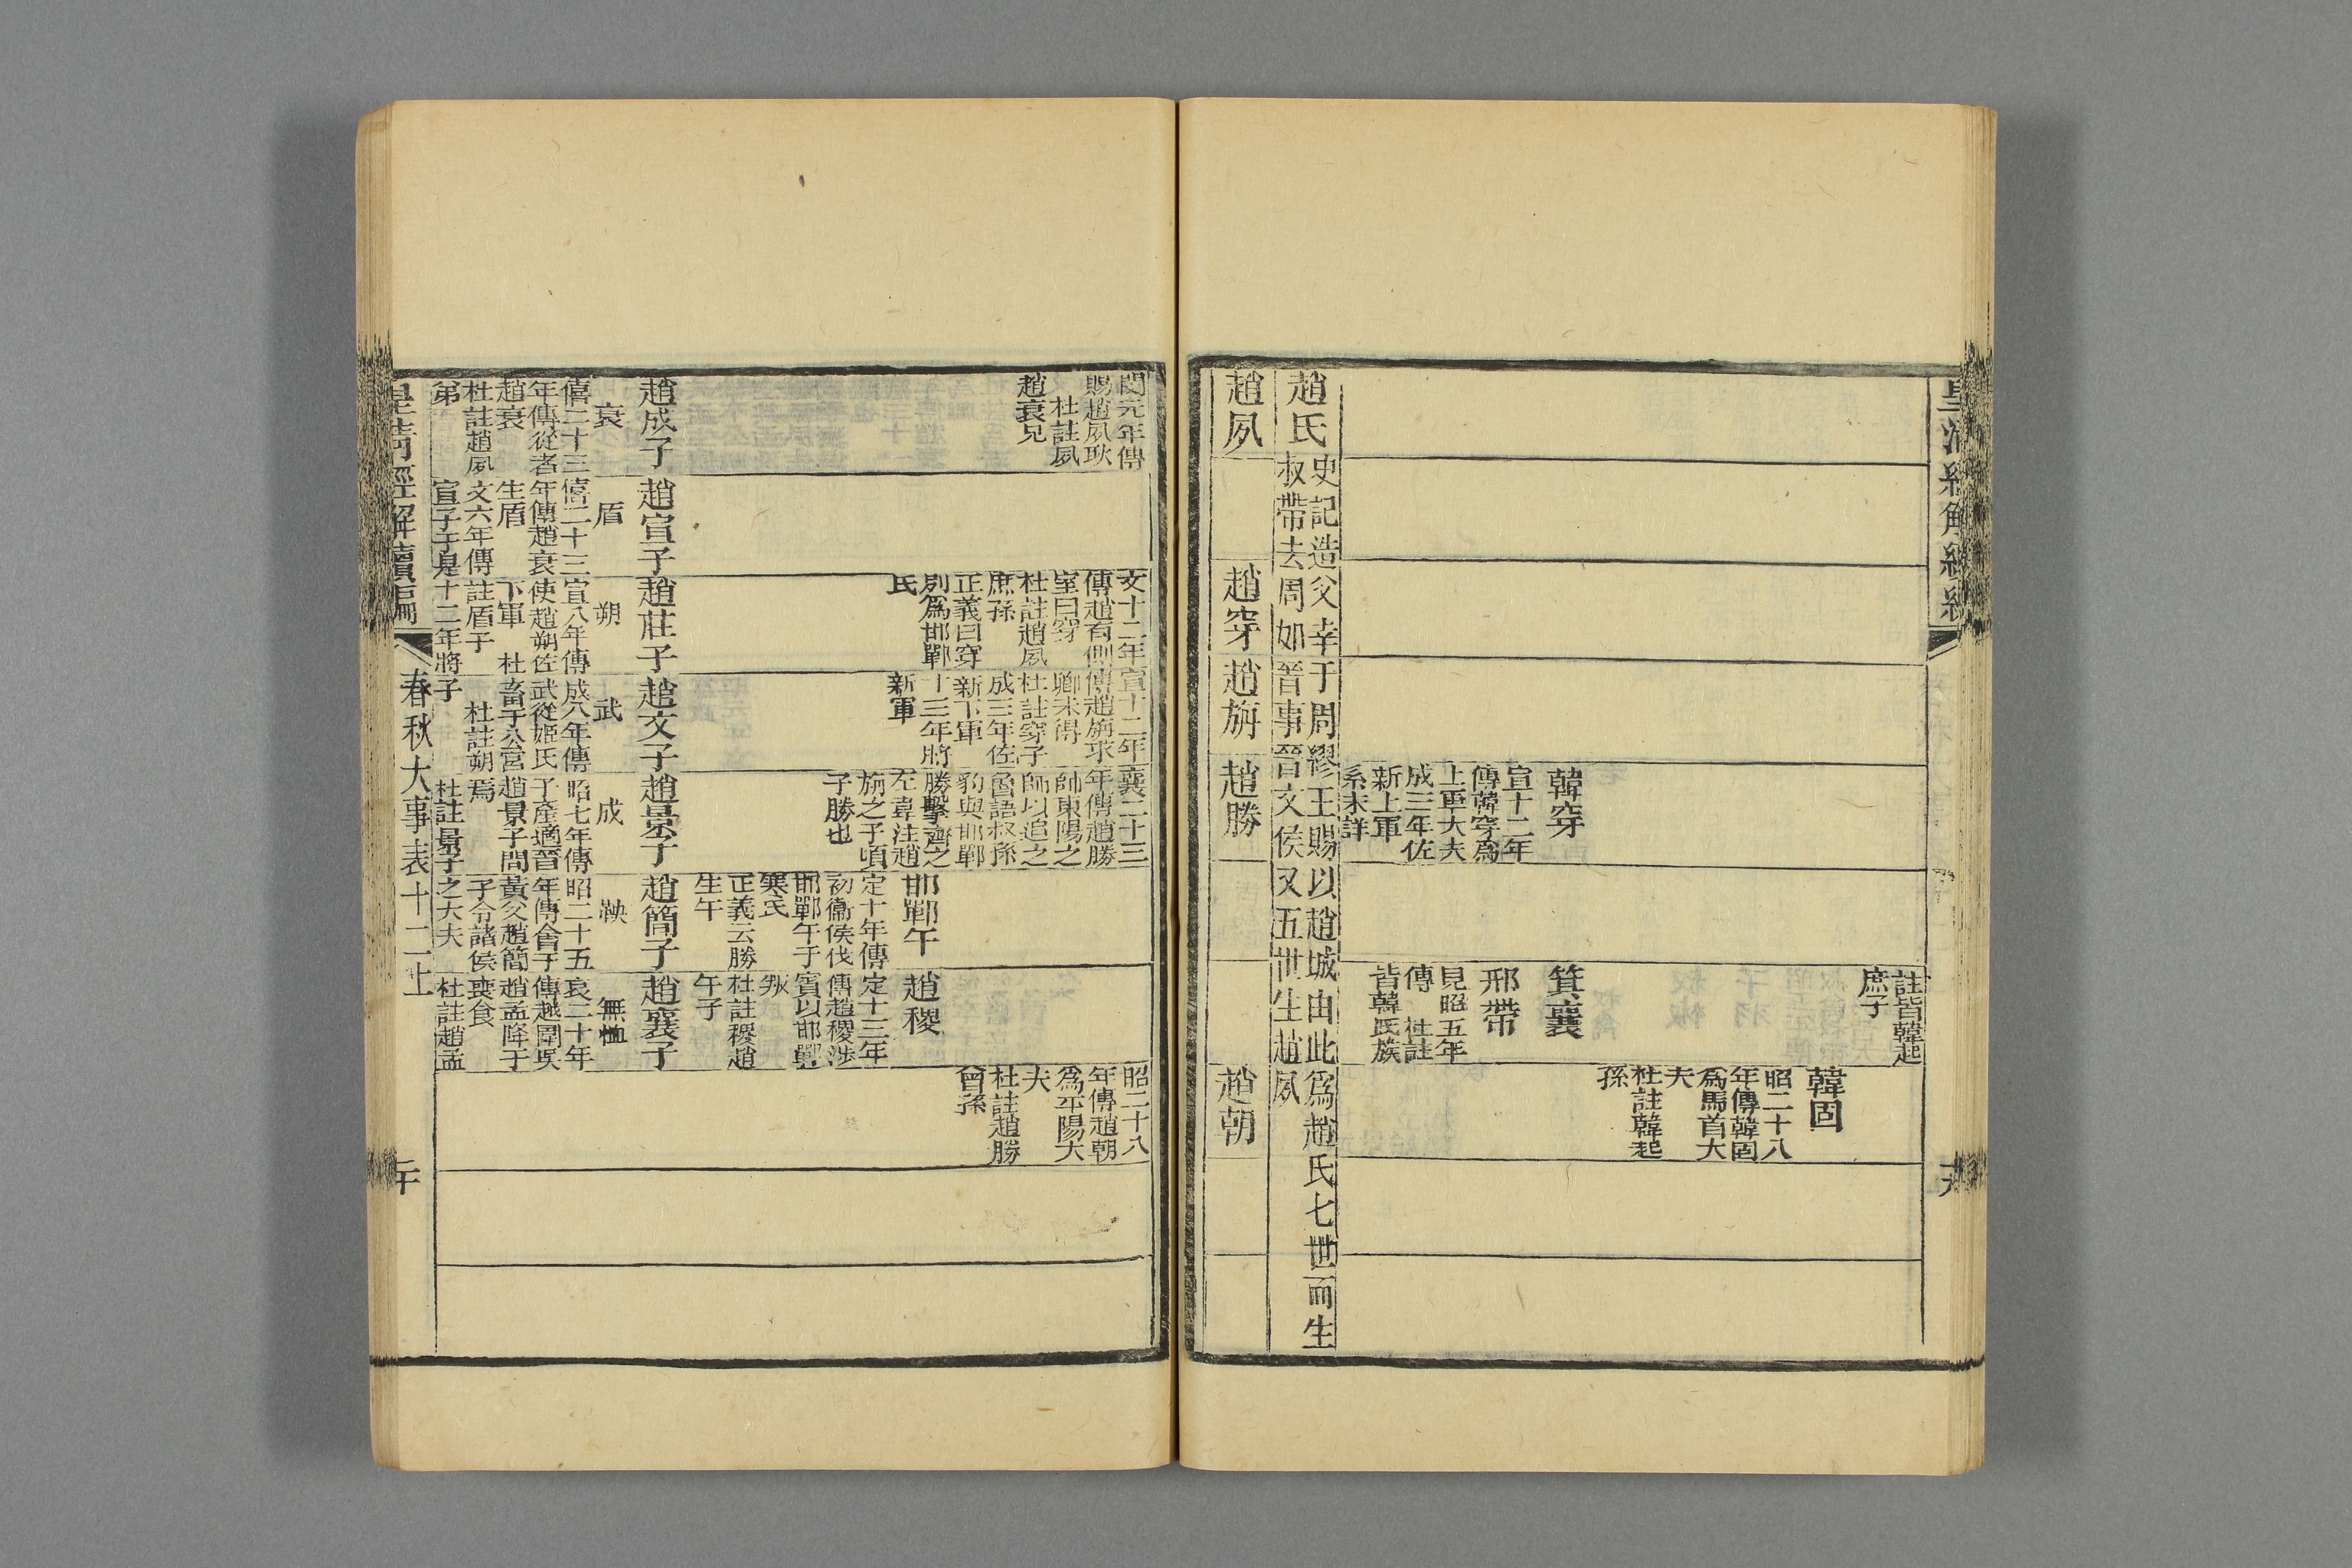 韓穿
宣十二年
傳韓穿爲
上軍大夫
成三年佐
新上軍
系未詳
註皆韓起
庶子
箕襄
邢帶
見昭五年
傳 杜註
皆韓氏族
韓固
昭二十八
年傳韓固
爲馬首大
夫
杜註韓起
孫
趙氏
史記造父幸于周繆王賜以趙城由此爲趙氏七世而生
叔帶去周如晉事晉文侯又五世生趙夙
趙夙
趙穿
趙旃
趙勝
趙朝
閔元年傳
賜趙夙耿
杜註夙
趙衰兄
文十二年
傳趙有側
室曰穿
杜註趙夙
庶孫
正義曰穿
別爲邯鄲
氏
宣十二年
傳趙旃求
卿未得
杜註穿子
成三年佐
新下軍
十三年將
新軍
襄二十三
年傳趙勝
帥東陽之
師以追之
魯語叔孫
豹與邯鄲
勝擊齊之
左韋注趙
旃之子頃
子勝也
昭二十八
年傳趙朝
爲平陽大
夫
杜註趙勝
曾孫
邯鄲午
定十年傳
初衞侯伐
邯鄲午于
寒氏
正義云勝
生午
趙稷
定十三年
傳趙稷涉
賓以邯鄲
叛
杜註稷趙
午子
趙成子
衰
僖二十三
年傳從者
趙衰
杜註趙夙
弟
趙宣子
盾
僖二十三
年傳趙衰
生盾
文六年傳
宣子于是
趙莊子
朔
宣八年傳
使趙朔佐
下軍 杜
註盾子
十二年將
趙文子
武
成八年傳
武從姬氏
畜于公宮
杜註朔
子
趙景子
成
昭七年傳
子產適晉
趙景子問
焉
杜註景子
趙簡子
鞅
昭二十五
年傳會于
黃父趙簡
子令諸侯
之大夫
趙襄子
無恤
哀二十年
傳越圍吳
趙孟降于
喪食
杜註趙孟
皇清經解續編
春秋大事表十二上